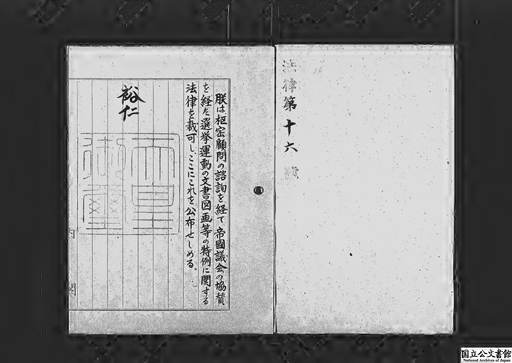 法律第十六號
朕は枢密顧問の諮詢を経て帝國議会の協賛
を経た選挙運動の文書図画等の特例に関する
法律を裁可し、ここにこれを公布せしめる。
裕仁
天皇
御璽
内閣
国立公文書館
National Archives of Japan